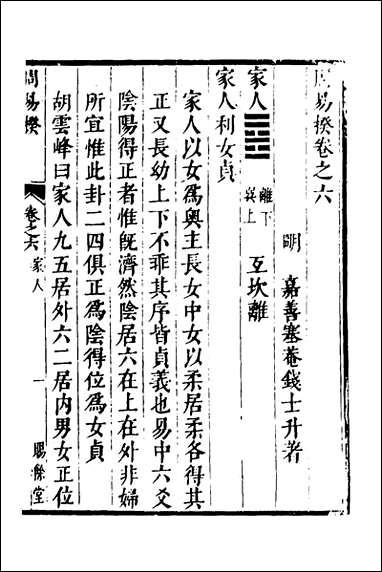 周易揆卷之六
明 嘉善塞菴錢士升著
家人 離下 巽上 互坎離
家人利女貞
家人以女為奧主長女中女以柔居柔各得其
正又長幼上下不乖其序皆貞義也易中六爻
陰陽得正者惟既濟然陰居六在上在外非婦
所宜惟此卦二四俱正為陰得位為女貞
胡雲峰曰家人九五居外六二居內男女正位
周易揆 卷之六 家人 一 賜餘堂